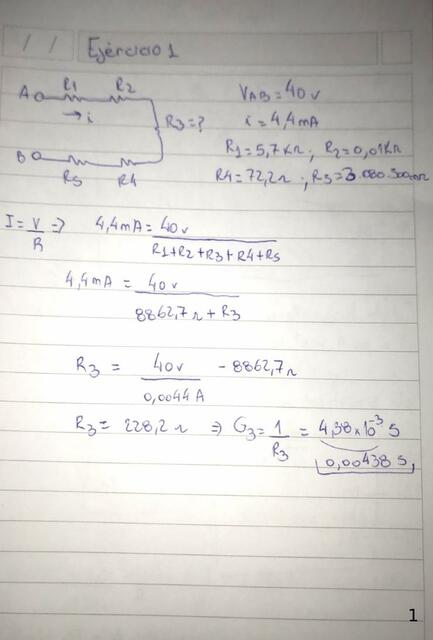 / / Ejercicio 1
A R1 R2
→ i
R3=?
B
R5 R4
VAB = 40 v
i = 4,4mA
R1 = 5,7 KΩ ; R2 = 0,01KΩ
R4 = 72,2Ω ; R5 = 3.080.500mΩ
I = V/R => 4,4mA = 40v / R1+R2+R3+R4+R5
4,4mA = 40v / 8862,7Ω + R3
R3 = 40v / 0,0044A - 8862,7Ω
R3 = 228,2Ω => G3 = 1/R3 = 4,38x10⁻³ S
0,00438 S
1